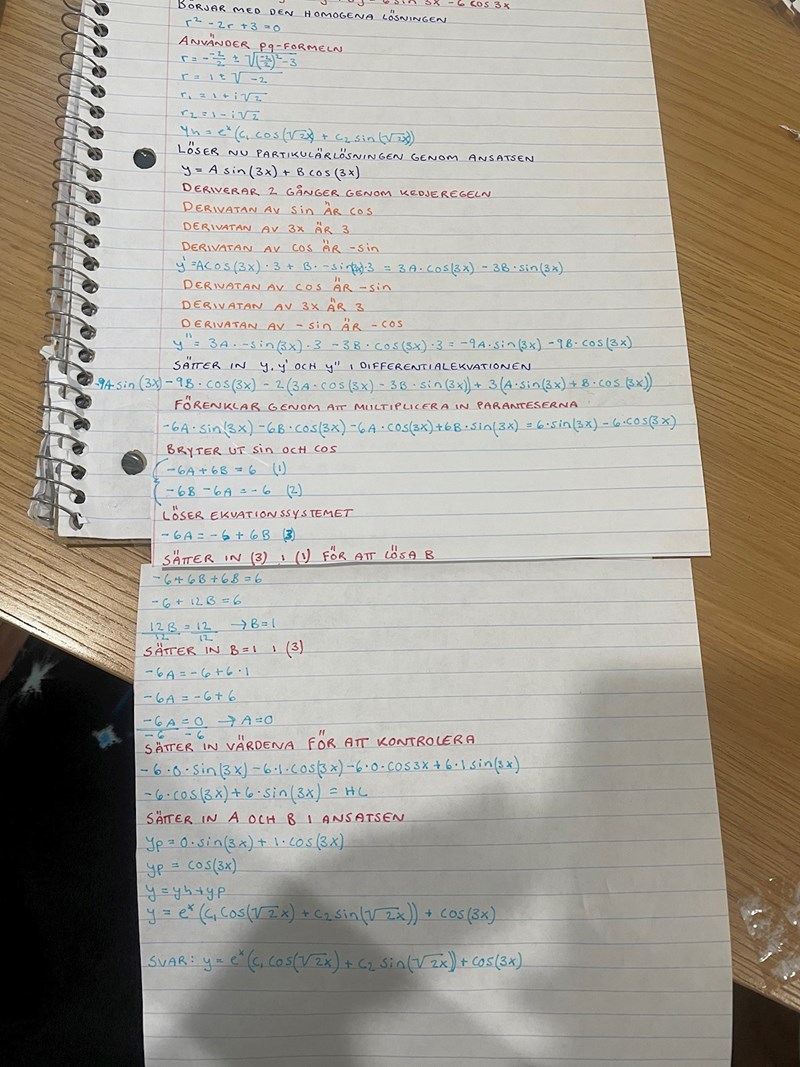 6 sin 3x - 6 cos 3x
BÖRJAR MED DEN HOMOGENA LÖSNINGEN
r² - 2r + 3 = 0
ANVÄNDER pq-FORMELN
r = - -2/2 ± √((-2/2)² - 3)
r = 1 ± √-2
r₁ = 1 + i√2
r₂ = 1 - i√2
yh = eˣ (c₁ cos(√2x) + c₂ sin(√2x))
LÖSER NU PARTIKULÄRLÖSNINGEN GENOM ANSATSEN
y = A sin(3x) + B cos(3x)
DERIVERAR 2 GÅNGER GENOM KEDJEREGELN
DERIVATAN AV sin ÄR cos
DERIVATAN AV 3x ÄR 3
DERIVATAN AV cos ÄR -sin
y' = A cos(3x)·3 + B·-sin(3x)·3 = 3A·cos(3x) - 3B·sin(3x)
DERIVATAN AV cos ÄR -sin
DERIVATAN AV 3x ÄR 3
DERIVATAN AV -sin ÄR -cos
y'' = 3A·-sin(3x)·3 - 3B·cos(3x)·3 = -9A·sin(3x) - 9B·cos(3x)
SÄTTER IN y, y' OCH y'' I DIFFERENTIALEKVATIONEN
-9A sin(3x) - 9B·cos(3x) - 2(3A·cos(3x) - 3B·sin(3x)) + 3(A·sin(3x) + B·cos(3x))
FÖRENKLAR GENOM ATT MULTIPLICERA IN PARANTESERNA
-6A·sin(3x) - 6B·cos(3x) - 6A·cos(3x) + 6B·sin(3x) = 6·sin(3x) - 6·cos(3x)
BRYTER UT sin OCH cos
-6A + 6B = 6 (1)
-6B - 6A = -6 (2)
LÖSER EKVATIONSSYSTEMET
-6A = -6 + 6B (3)
SÄTTER IN (3) I (1) FÖR ATT LÖSA B
-6 + 6B + 6B = 6
-6 + 12B = 6
12B/12 = 12/12 → B = 1
SÄTTER IN B = 1 I (3)
-6A = -6 + 6·1
-6A = -6 + 6
-6A/-6 = 0/-6 → A = 0
SÄTTER IN VÄRDENA FÖR ATT KONTROLERA
-6·0·sin(3x) - 6·1·cos(3x) - 6·0·cos3x + 6·1 sin(3x)
-6·cos(3x) + 6·sin(3x) = HL
SÄTTER IN A OCH B I ANSATSEN
yp = 0·sin(3x) + 1·cos(3x)
yp = cos(3x)
y = yh + yp
y = eˣ (c₁ cos(√2x) + c₂ sin(√2x)) + cos(3x)
SVAR: y = eˣ (c₁ cos(√2x) + c₂ sin(√2x)) + cos(3x)